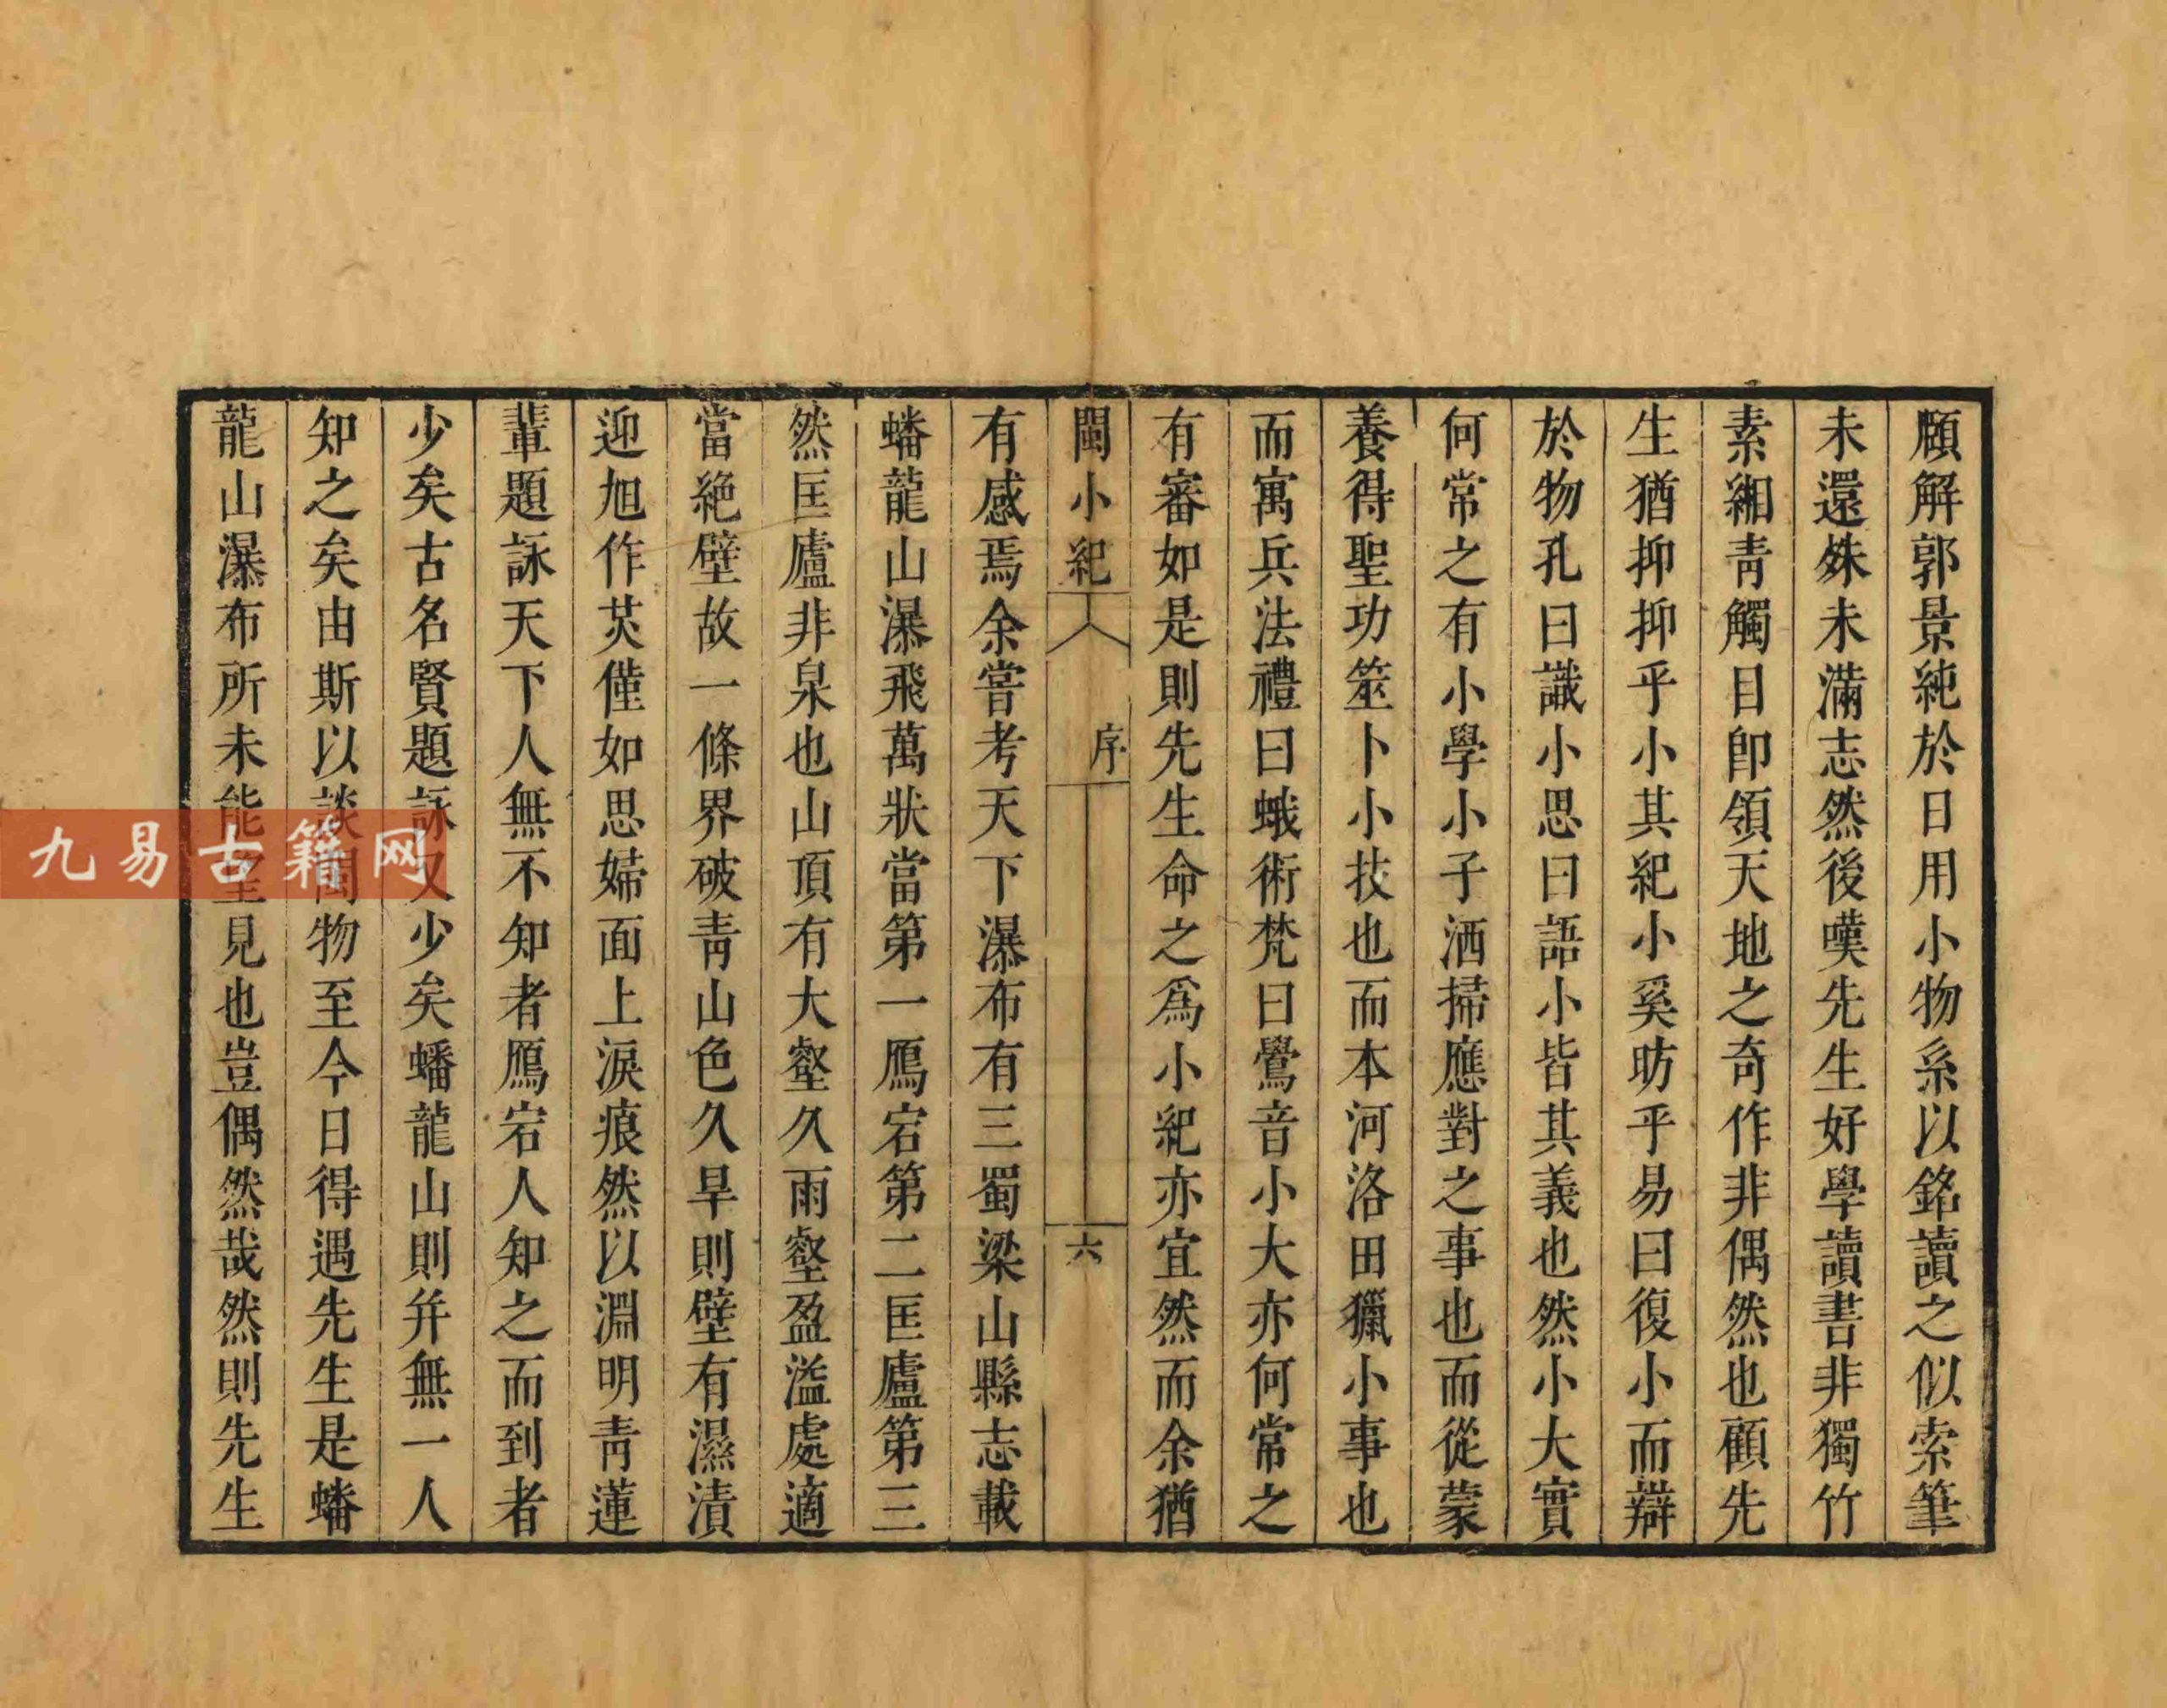 頋解郭景純於日用小物系以銘讀之似索筆
未還姝未滿志然後嘆先生好學讀書非獨竹
素緗靑觸目卽領天地之奇作非偶然也顧先
生猶抑抑乎小其紀小奚昉乎易曰復小而辯
於物孔曰識小思曰語小皆其義也然小大實
何常之有小學小子洒掃應對之事也而從蒙
養得聖功筮卜小技也而本河洛田獵小事也
而寓兵法禮曰蛾術梵曰鶯音小大亦何常之
有審如是則先生命之爲小紀亦宜然而余猶
閩小紀 序 六
有感焉余嘗考天下瀑布有三蜀梁山縣志載
蟠龍山瀑飛萬狀當第一鴈宕第二匡廬第三
然匡廬非泉也山頂有大壑久雨壑盈溢處適
當絕壁故一條界破靑山色久旱則壁有濕漬
迎旭作芡僅如思婦面上淚痕然以淵明靑蓮
輩題詠天下人無不知者鴈宕人知之而到者
少矣古名賢題詠又少矣蟠龍山則幷無一人
知之矣由斯以談閩物至今日得遇先生是蟠
龍山瀑布所未能望見也豈偶然哉然則先生
九易古籍网